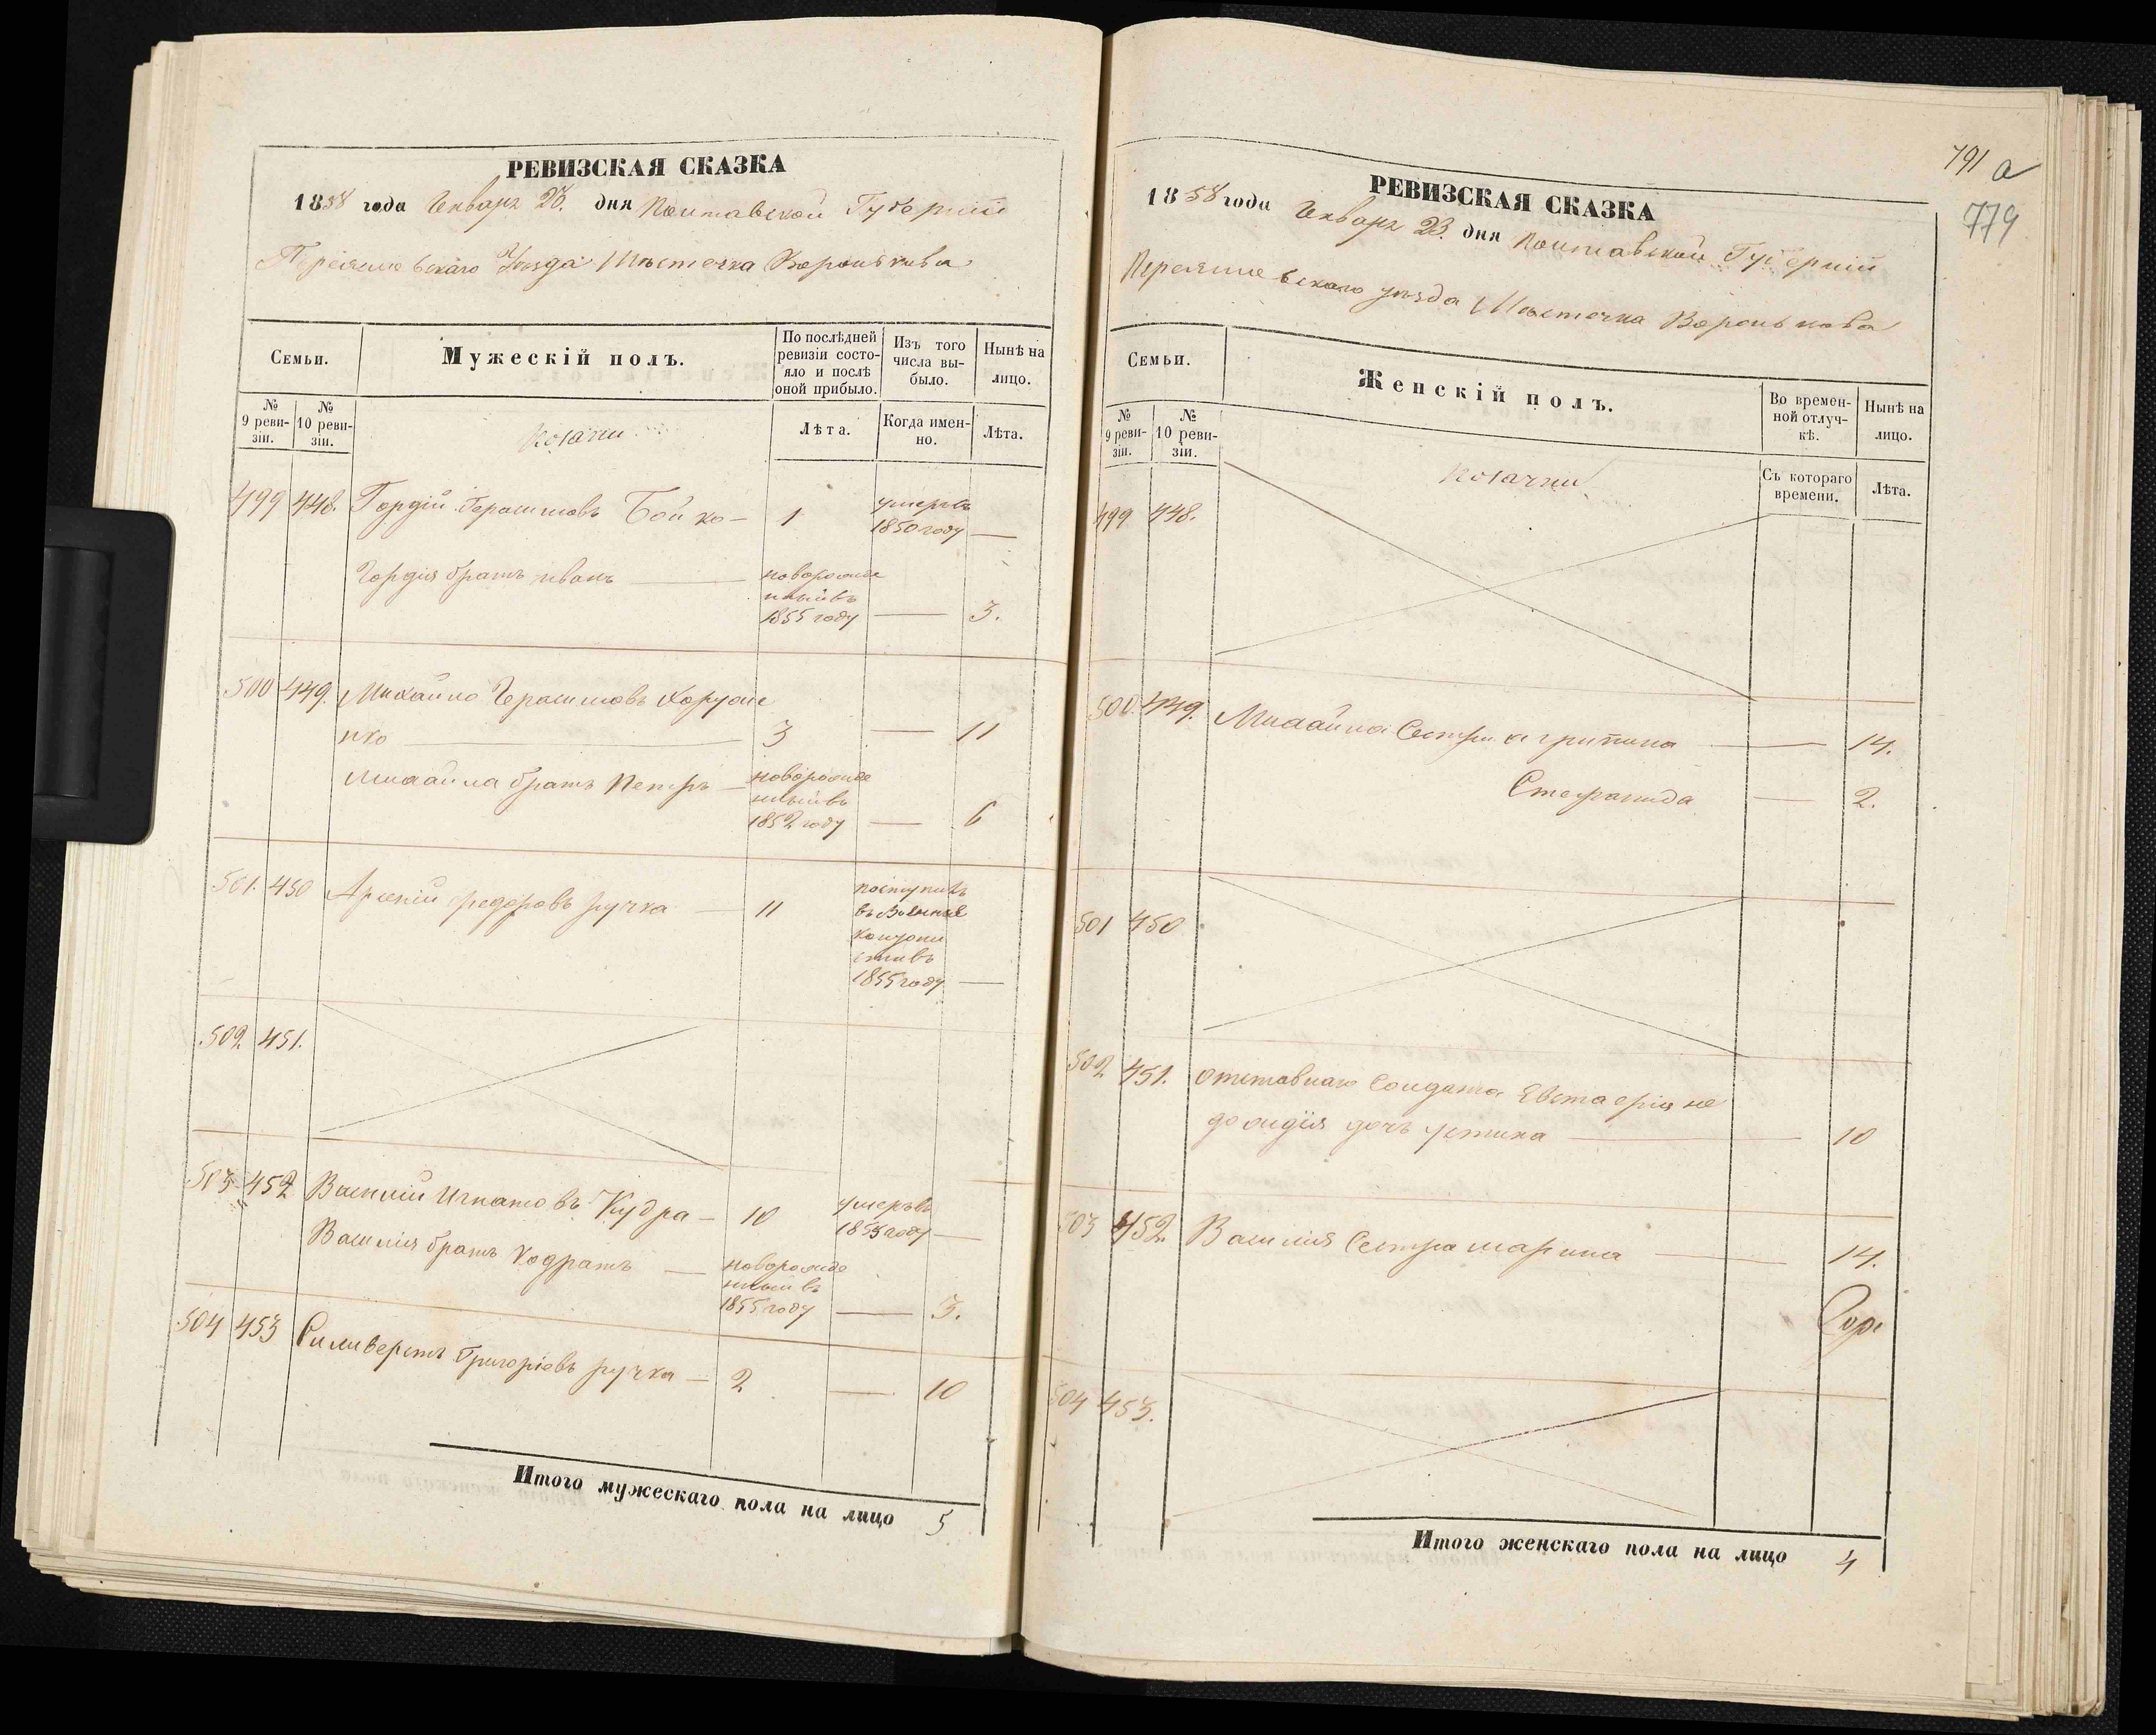 РЕВИЗСКАЯ СКАЗКА
1858 года Генваря 28. дня Полтавской Губерніи
Переяславскаго Уѣзда Мѣстечка Воронькова
Семьи.
Мужескій полъ.
По послѣдней ревизіи состо-
яло и послѣ оной прибыло.
Изъ того числа вы-
было.
Нынѣ на лицо.
№ 9 реви-
зіи.
№ 10 реви-
зіи.
Козаки
Лѣта.
Когда имен-
но.
Лѣта.
499 448. Гордій Герасимовъ Бойко — 1 умеръ въ
1850 году —
Гордія братъ иванъ — новорожде
нный въ
1855 году — 3.
500 449. Михайло Герасимовъ Харуже
нко — 3 — 11
Михайла братъ Петръ — новорожде
нный въ
1852 году — 6
501. 450 Арсеній федоровъ ручка — 11 поступилъ
въ Военные
кантони
сты въ
1855 году —
502. 451.
503 452 Василій Игнатовъ Кудра — 10 умеръ въ
1853 году —
Василія братъ Кодратъ — новорожде
нный въ
1855 году — 3.
504 453 Силиверстъ Григоріевъ ручка — 2 — 10
Итого мужескаго пола на лицо 5
791 а
779
РЕВИЗСКАЯ СКАЗКА
1858 года Генваря 28. дня Полтавской Губерніи
Переяславскаго уѣзда Мѣстечка Воронькова
Семьи.
Женскій полъ.
Во времен-
ной отлуч-
кѣ.
Нынѣ на лицо.
№ 9 реви-
зіи.
№ 10 реви-
зіи.
Козачки
Съ котораго времени.
Лѣта.
499 448.
500. 449. Михайла Сестры агрипина — 14.
Стефанида — 2.
501 450
502 451. отставнаго Солдата Евстафія не
до дочь устина — 10
503 452. Василія Сестра марина — 14.
504 453.
Итого женскаго пола на лицо 4